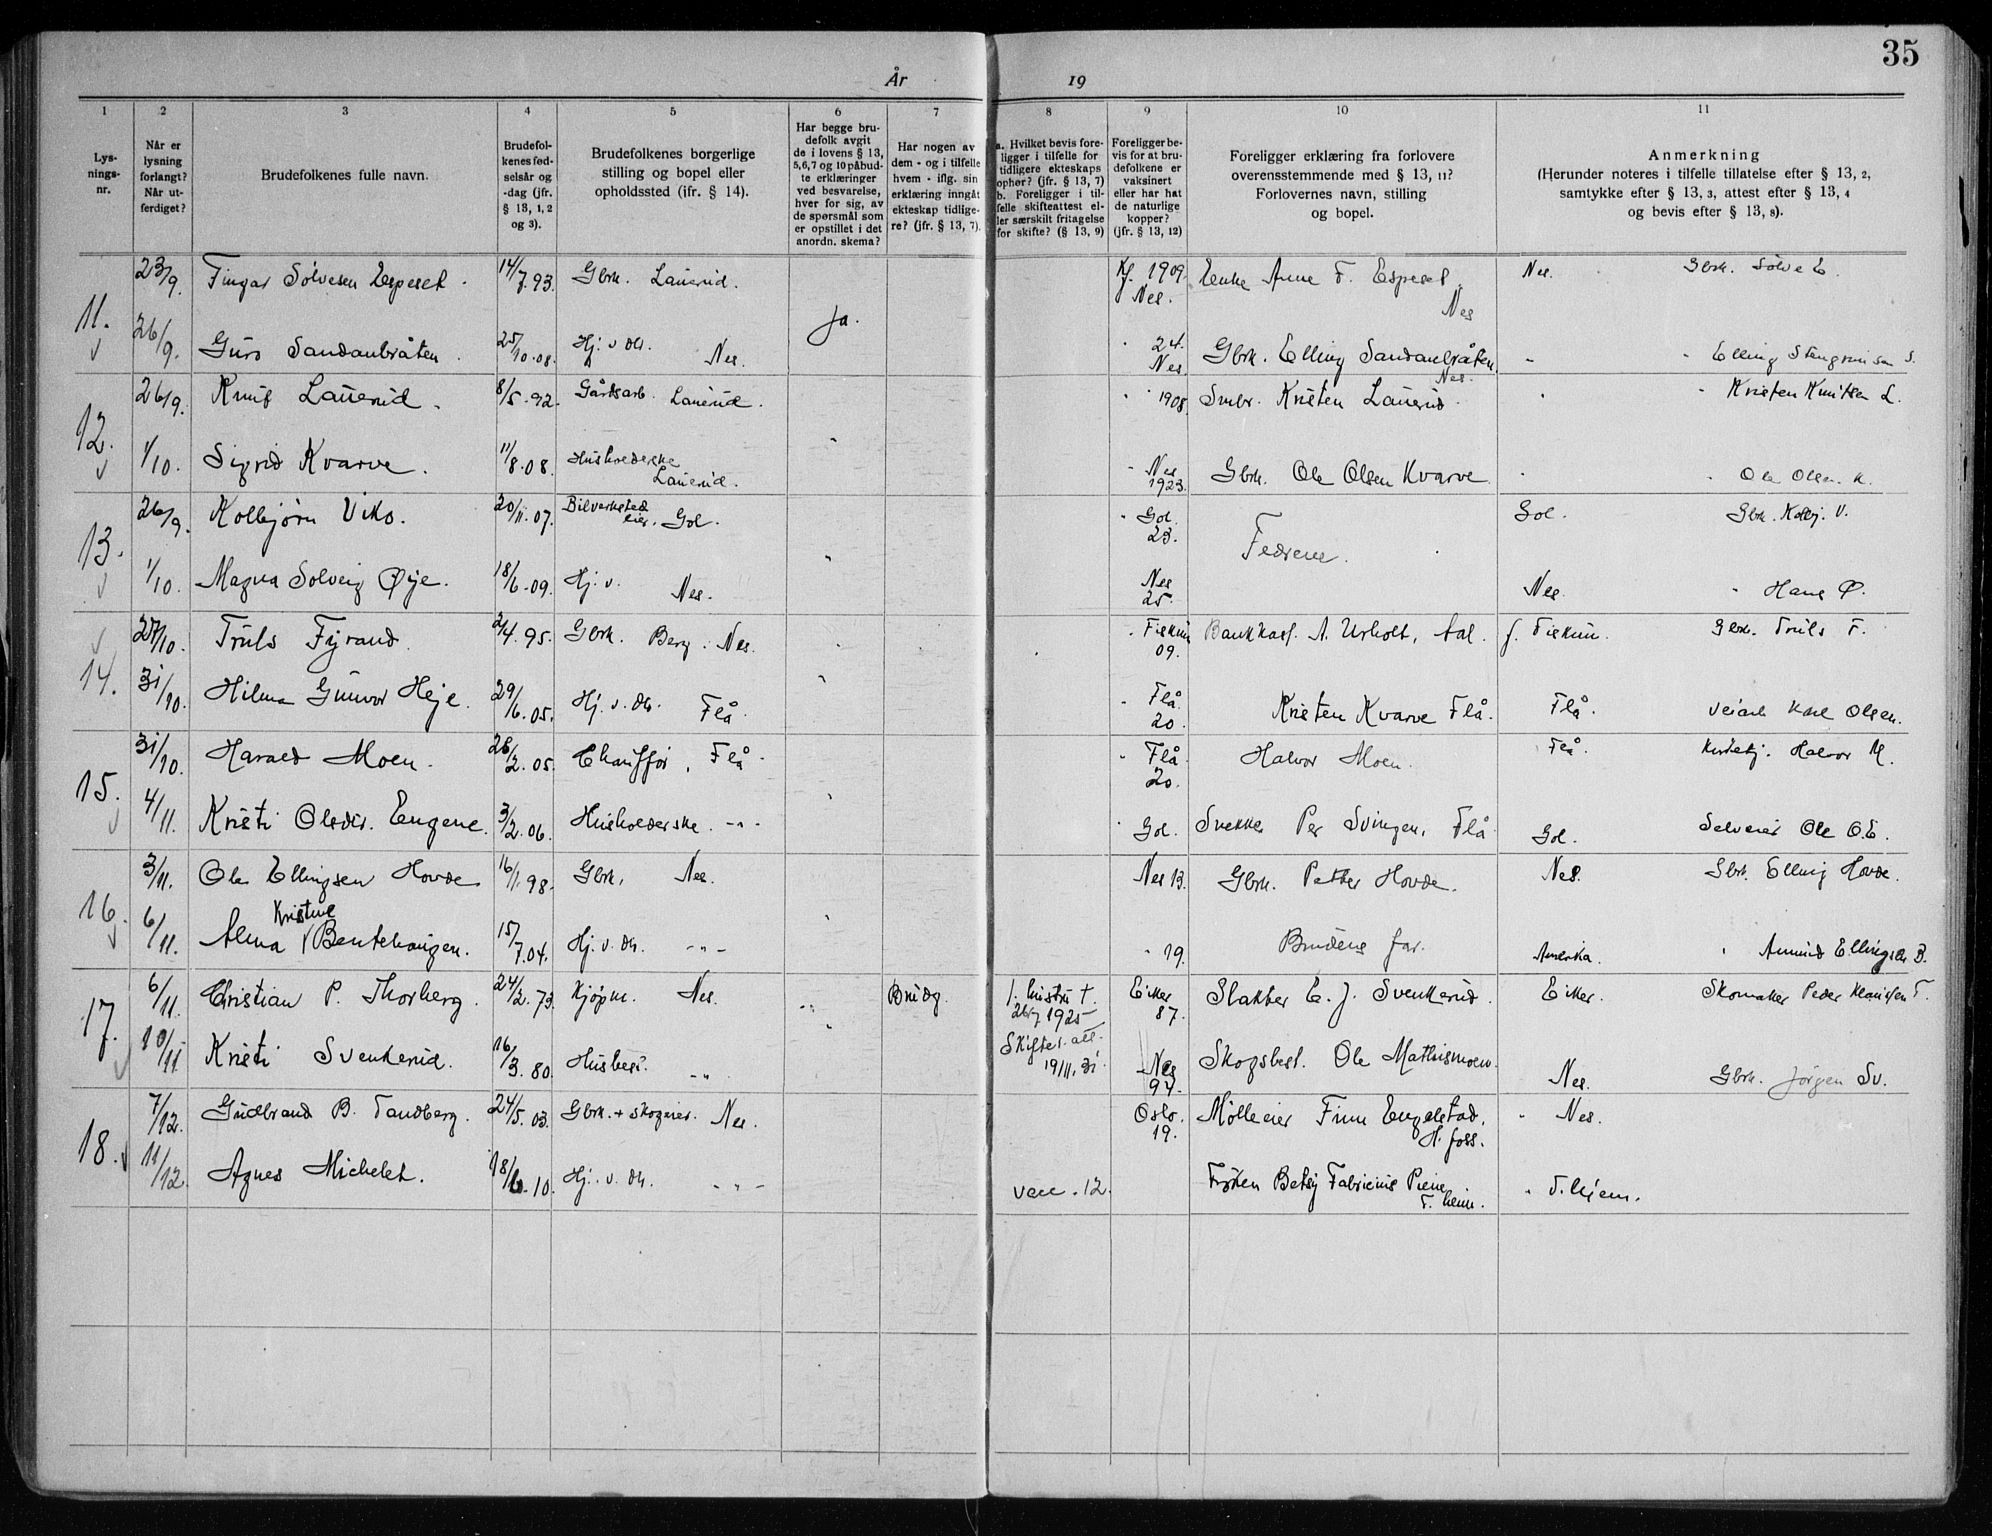 35
År 19
1 2 3 4 5 6 7 8 9 10 11
Lys-
nings-
nr.
Når er
lysning
forlangt?
Når ut-
ferdiget?
Brudefolkenes fulle navn.
Brudefol-
kenes fød-
selsår og
-dag (jfr.
§ 13, 1, 2
og 3).
Brudefolkenes borgerlige
stilling og bopel eller
opholdssted (ifr. § 14).
Har begge bru-
defolk avgit
de i lovens § 13,
5,6,7 og 10 påbud-
te erklæringer
ved besvarelse,
hver for sig, av
de spørsmål som
er opstillet i det
anordn. skema?
Har nogen av
dem - og i tilfelle
hvem - iflg. sin
erklæring inngått
ekteskap tidlige-
re? (jfr. § 13, 7).
a. Hvilket bevis fore-
ligger i tilfelle for
tidligere ekteskaps
ophør? (jfr. § 13, 7)
b. Foreligger i til-
felle skifteattest el-
ler særskilt fritagelse
for skifte? (§ 13, 9)
Foreligger be-
vis for at bru-
defolkene er
vaksinert
eller har hat
de naturlige
kopper?
(jfr. § 13, 12)
Foreligger erklæring fra forlovere
overensstemmende med § 13, 11?
Forlovernes navn, stilling
og bopel.
Anmerkning
(Herunder noteres i tilfelle tillatelse efter § 13, 2,
samtykke efter § 13, 3, attest efter § 13, 4
og bevis efter § 13, 8).
11.
23/9. Fingar Sølvesen Espeset. 14/7.93. Gbrk. Lauerud. Ja. Kf. 1909. Nes. Enke Anne F. Espeset. Nes Nes. Gbrk. Sølve E.
26/9. Guro Sandanbråten. 25/10.08. Hj. v. do. Nes. " 24. Nes Gbrk. Elling Sandanbråten. Nes. " " Elling S.
12.
26/9. Knut Lauerud. 8/5.92. Gårdsarb. Lauerud. " 1908 Smbr. Kristen Lauerud. " " Kristen Knutsen L.
1/10. Sigrid Kvarve. 11/8.08. Husholderske Lauerud. " Nes 1923. Gbrk. Ole Olsen Kvarve. " " Ole Olsen K.
13.
26/9. Kolbjørn Viko. 20/11.07. Bilverksted eier. Gol. " Gol. 23. Fedrene. Gol. Gbr. Kolbj. V.
1/10. Magna Solveig Øye. 18/6.09. Hj. v. Nes. Nes 25. Nes. " Hans Ø.
14.
27/10. Truls Fyrand. 2/4.95. Gbrk. Berg. Nes. " Fiskum 09. Bankkass. A. Urholt, Aal. f. Fiskum. Gbrk. Truls F.
31/10. Hilma Gunvor Heje. 29/6.05. Hj. v. do. Flå. " Flå. 20. Kristen Kvarve Flå. Flå. Veiarb Karl Olsen.
15.
31/10. Harald Moen. 26/2.05. Chauffør, Flå. " Flå. 20. Halvor Moen. Flå Halvor M.
4/11. Kristi Olsdtr. Engene. 3/2.06. Husholderske. - " - " Gol. Snekker Per Svingen, Flå. Gol. Selveier Ole O. E.
16.
3/11. Ole Ellingsen Hovde 16/1.98. Gbrk. Nes. Nes 13. Gbrk. Petter Hovde. Nes. Gbrk. Elling Hovde.
6/11. Alma Kristine Bentehaugen. 15/7.04. Hj. v. do. - " - " 19. Brudens far. Amerika. " Amund Ellingsen B.
17.
6/11. Christian P. Thorberg. 24/2.73. Kjøpm. Nes. Brudg. 1. hustru †. 1925 Skifteatt. 19/11.31 Eiker 87. Slakter E. J. Svenkerud. Eiker. Skomaker Peder Klausen T.
10/11 Kristi Svenkerud. 16/3.80. Husbest. - " - Nes 94. Skogsbest. Ole Mathismoen. Nes. Gbrk. Jørgen Sv.
18.
7/12. Gudbrand B. Tandberg. 24/5.03. Gbrk. + skogeier. Nes. Oslo. 19. Mølleeier Finn Engelstad, H. foss. " Nes.
11/12. Agnes Michelet. 18/6.10. Hj. v. do. - " - vacc. 12. Frøken Betsy Fabricius Piene T. heim. " T. hjem.